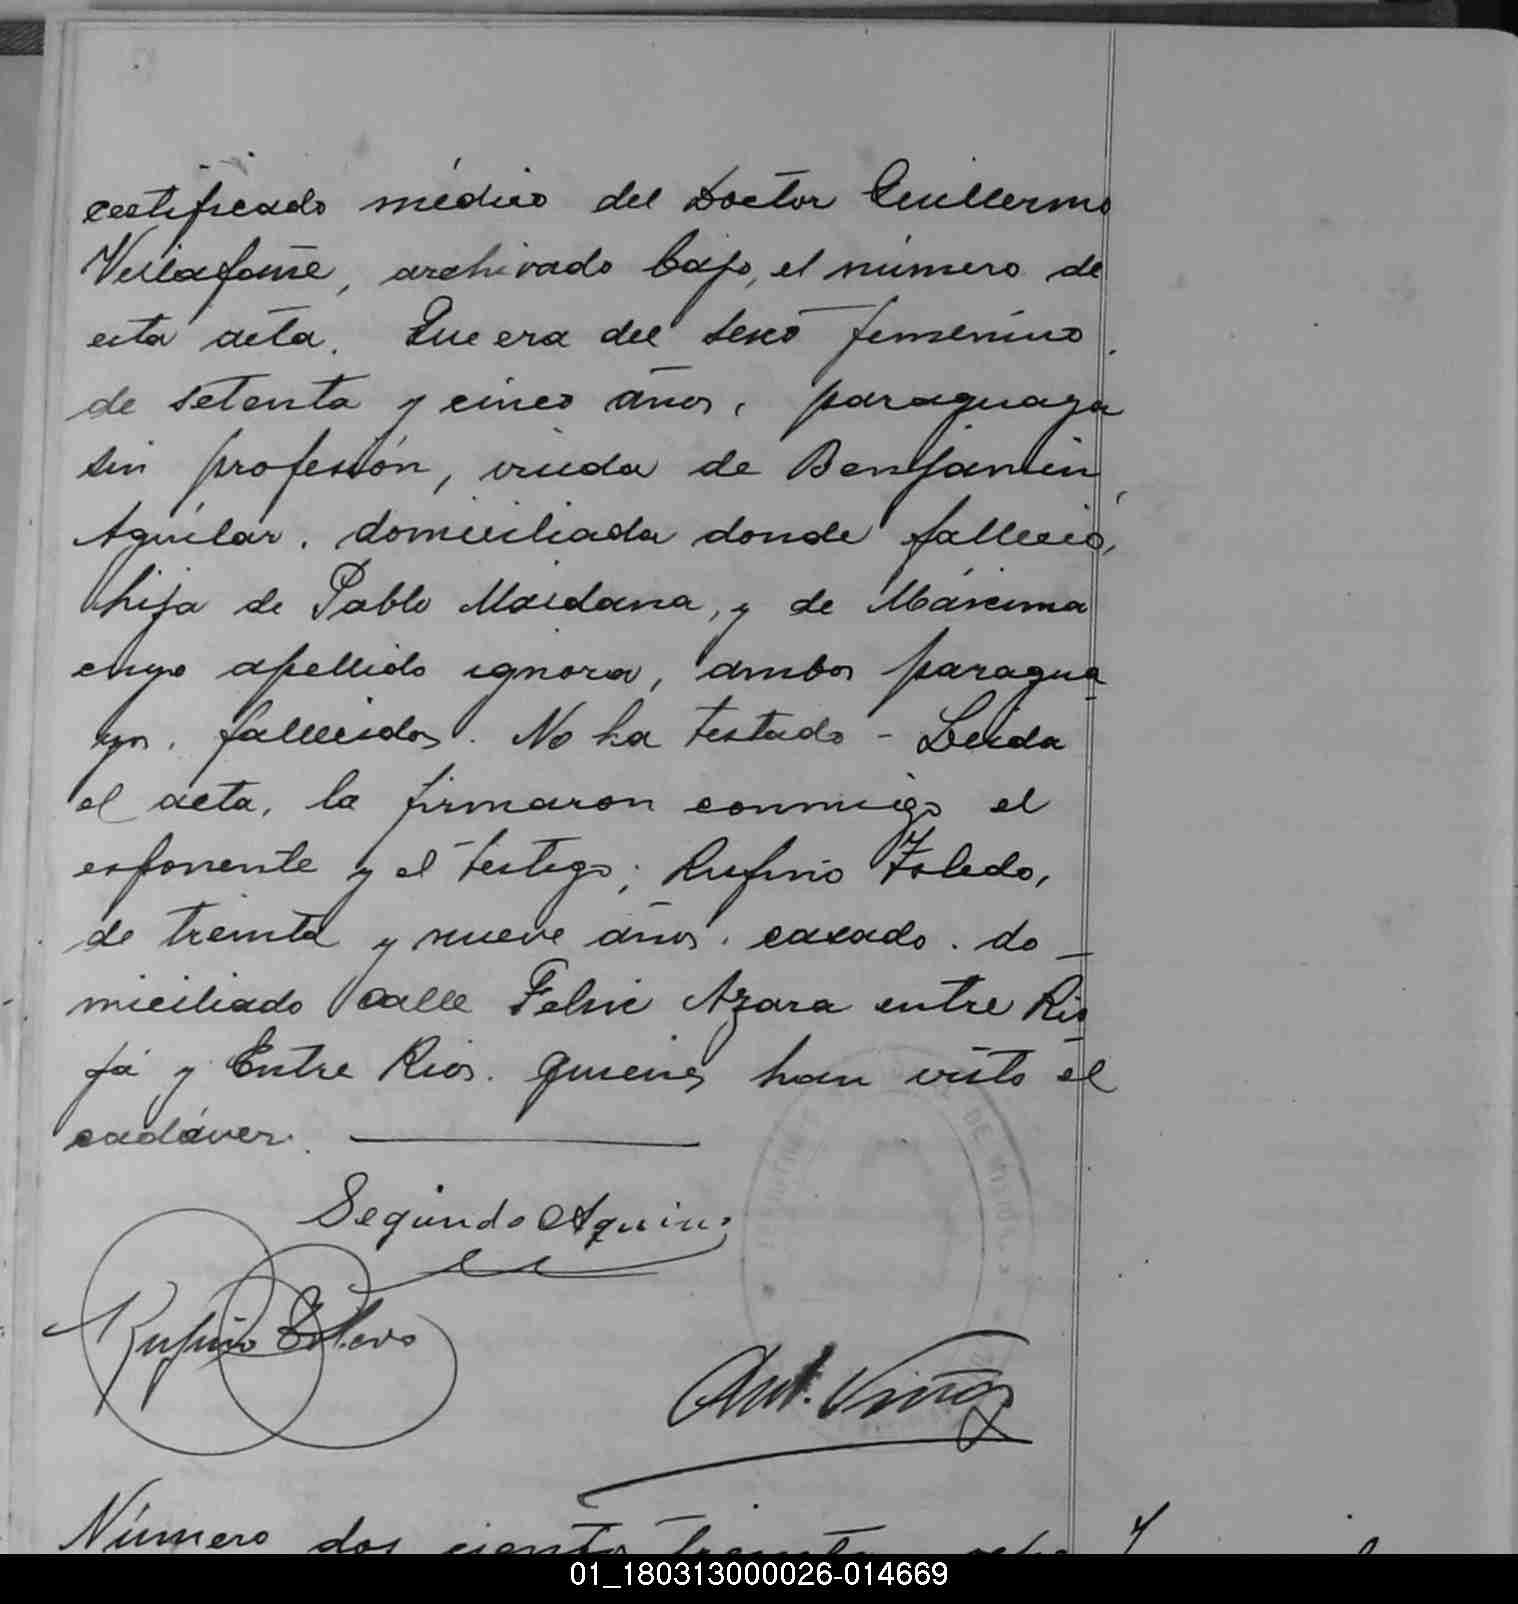 certificado médico del Doctor Guillermo
Villafañe, archivado bajo, el número de
esta acta. Que era del sexo femenino.
de setenta y cinco años, paraguaya
sin profesión, viuda de Benjamin
Aguilar. domiciliada donde falleció,
hija de Pablo Maidana, y de Máxima
cuyo apellido ignora, ambos paragua
yos. fallecidos. No ha testado - Leida
el acta, la firmaron conmigo el
exponente y el testigo; Rufino Toledo,
de treinta y nueve años. casado. do-
miciliado calle Felix Azara entre Rio
ja y Entre Rios. quienes han visto el
cadáver.
Segundo Aquino
Rufino Toledo
Ant. Viñas
DE MISION
Número dos cientos treinta
01_180313000026-014669